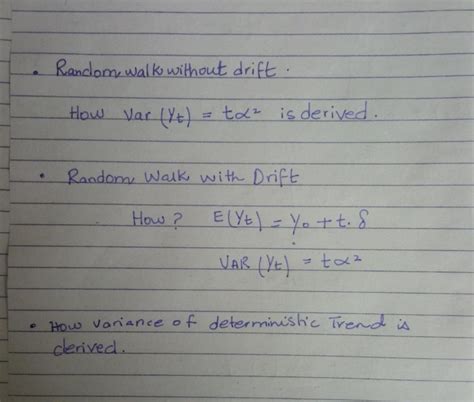 • Random walk without drift.
How Var (Yt) = tα² is derived.
• Random Walk with Drift
How? E(Yt) = Y₀ + t.δ
VAR (Yt) = tα²
• How variance of deterministic Trend is
derived.